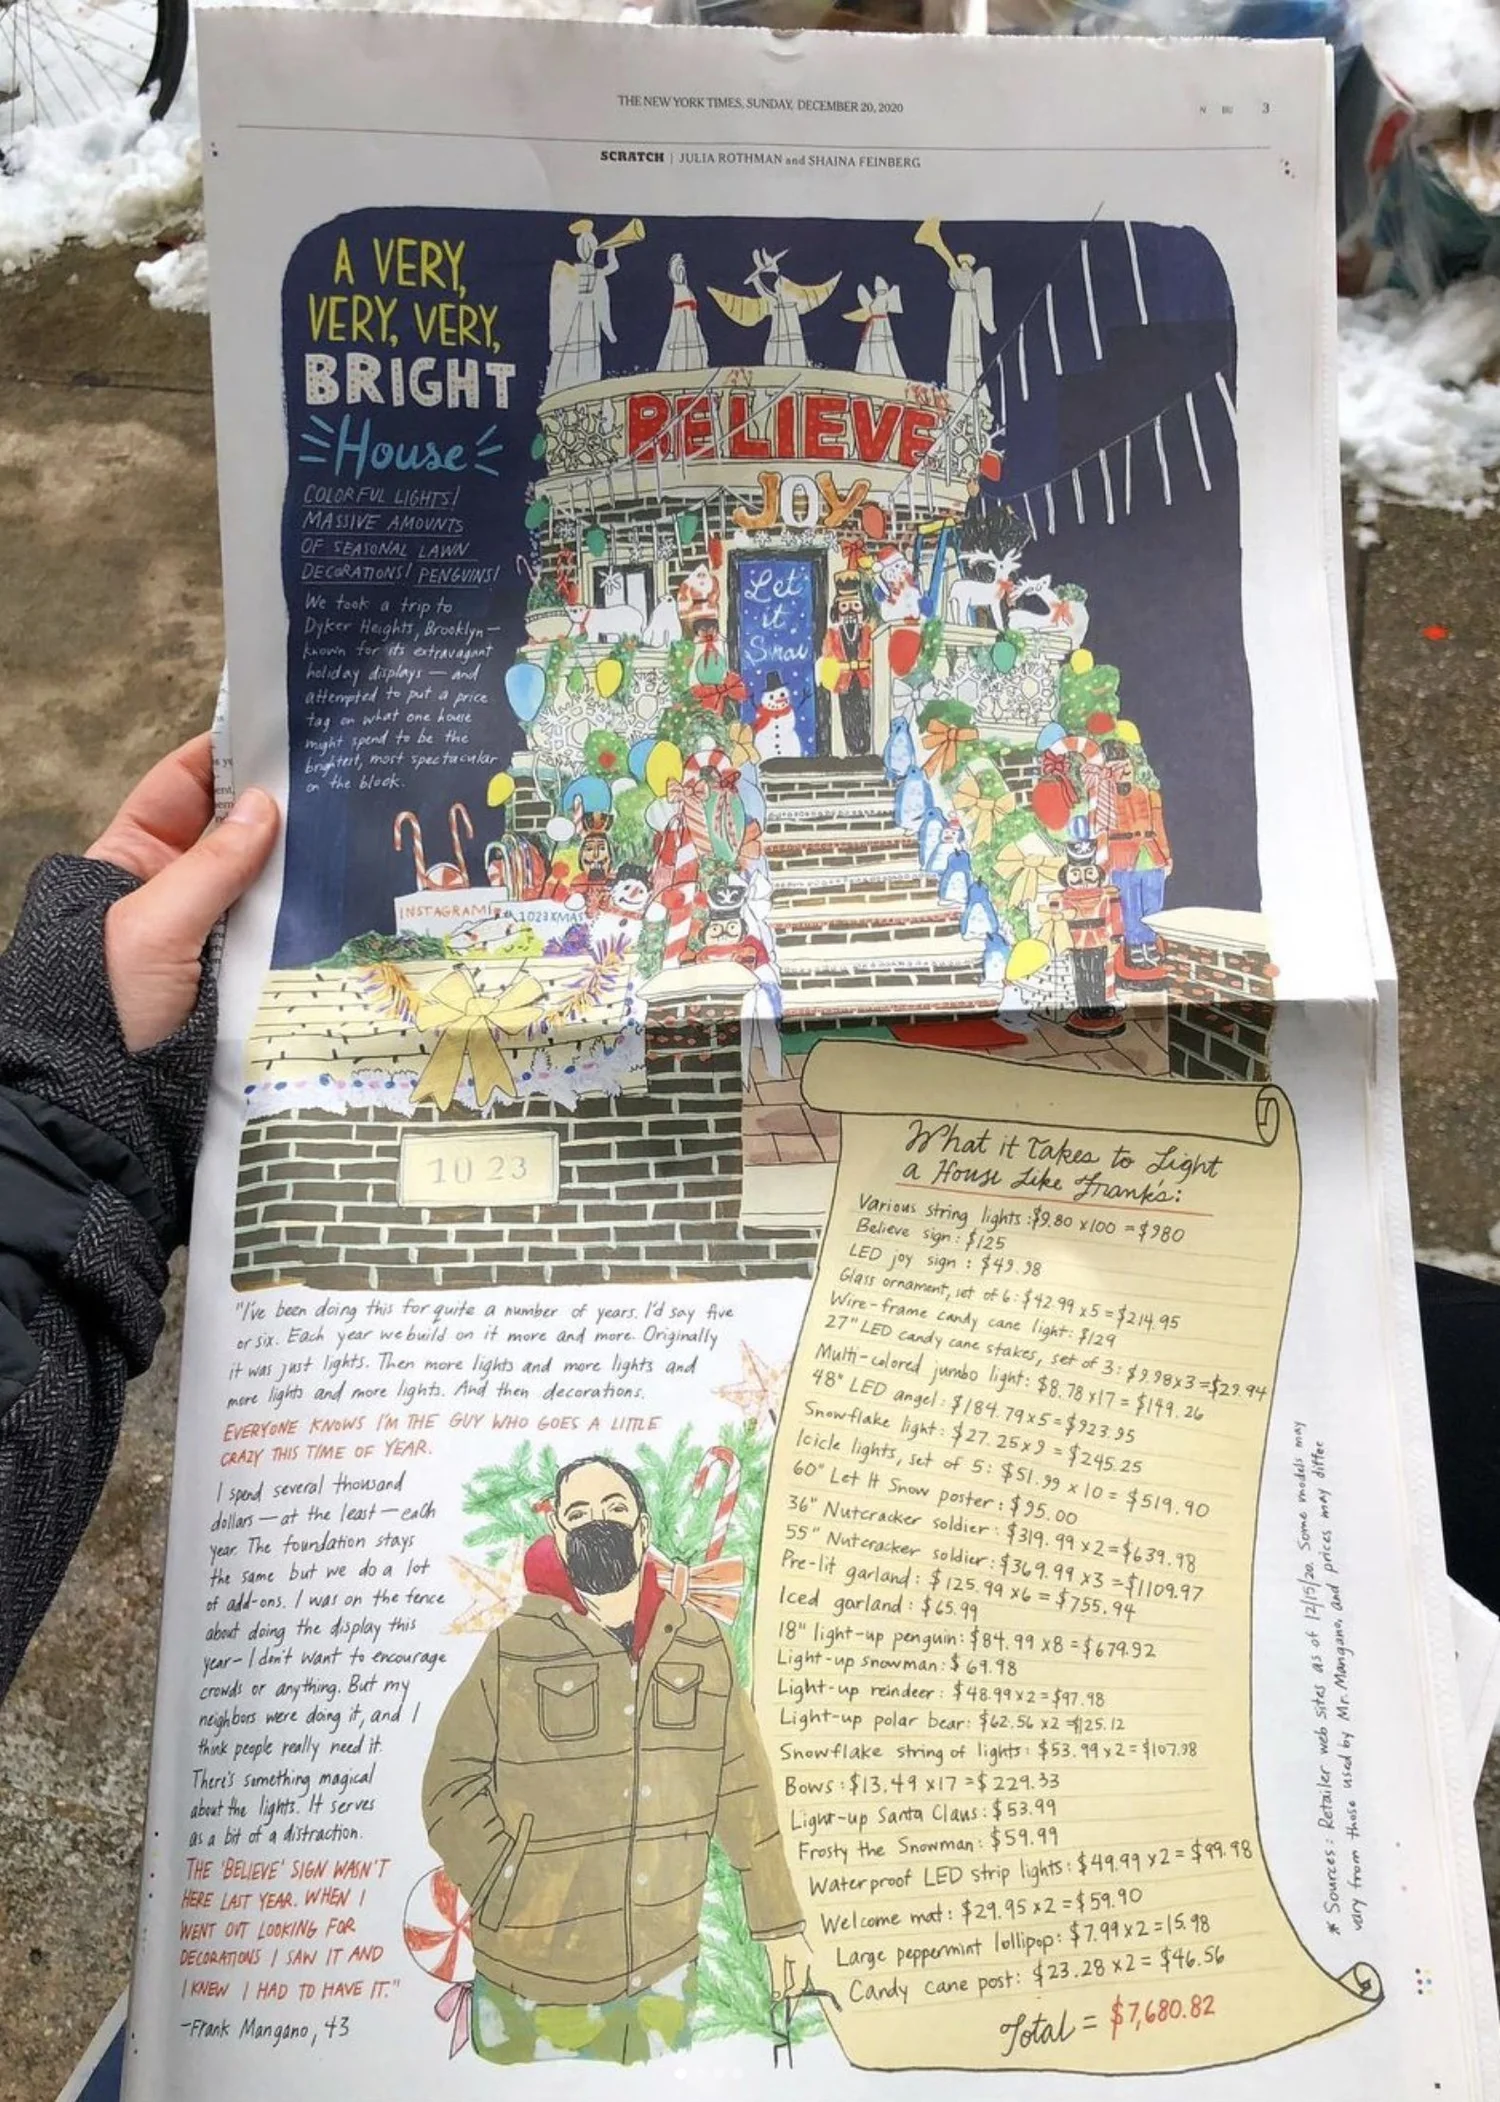 THE NEW YORK TIMES, SUNDAY, DECEMBER 20, 2020
N BU 3
SCRATCH | JULIA ROTHMAN and SHAINA FEINBERG
A VERY,
VERY, VERY,
BRIGHT
House
COLORFUL LIGHTS!
MASSIVE AMOUNTS
OF SEASONAL LAWN
DECORATIONS! PENGUINS!
We took a trip to
Dyker Heights, Brooklyn—
known for its extravagant
holiday displays — and
attempted to put a price
tag on what one house
might spend to be the
brightest, most spectacular
on the block.
BELIEVE
JOY
Let
it
Snow
INSTAGRAM
1023XMAS
10 23
"I've been doing this for quite a number of years. I'd say five
or six. Each year we build on it more and more. Originally
it was just lights. Then more lights and more lights and
more lights and more lights. And then decorations.
EVERYONE KNOWS I'M THE GUY WHO GOES A LITTLE
CRAZY THIS TIME OF YEAR.
I spend several thousand
dollars — at the least — each
year. The foundation stays
the same but we do a lot
of add-ons. I was on the fence
about doing the display this
year — I don't want to encourage
crowds or anything. But my
neighbors were doing it, and I
think people really need it.
There's something magical
about the lights. It serves
as a bit of a distraction.
THE 'BELIEVE' SIGN WASN'T
HERE LAST YEAR. WHEN I
WENT OUT LOOKING FOR
DECORATIONS I SAW IT AND
I KNEW I HAD TO HAVE IT."
-Frank Mangano, 43
What it Takes to Light
a House Like Frank's:
Various string lights: $9.80 x100 = $980
Believe sign: $125
LED joy sign: $49.98
Glass ornament, set of 6: $42.99 x5 = $214.95
Wire-frame candy cane light: $129
27" LED candy cane stakes, set of 3: $9.98x3 = $29.94
Multi-colored jumbo light: $8.78 x17 = $149.26
48" LED angel: $184.79x5 = $923.95
Snowflake light: $27.25x9 = $245.25
Icicle lights, set of 5: $51.99 x 10 = $519.90
60" Let It Snow poster: $95.00
36" Nutcracker soldier: $319.99 x2 = $639.98
55" Nutcracker soldier: $369.99 x3 = $1109.97
Pre-lit garland: $125.99 x6 = $755.94
Iced garland: $65.99
18" light-up penguin: $84.99 x8 = $679.92
Light-up snowman: $69.98
Light-up reindeer: $48.99x2 = $97.98
Light-up polar bear: $62.56 x2 = $125.12
Snowflake string of lights: $53.99x2 = $107.98
Bows: $13.49 x17 = $229.33
Light-up Santa Claus: $53.99
Frosty the Snowman: $59.99
Waterproof LED strip lights: $49.99 x2 = $99.98
Welcome mat: $29.95 x2 = $59.90
Large peppermint lollipop: $7.99x2 = 15.98
Candy cane post: $23.28 x2 = $46.56
Total = $7,680.82
* Sources: Retailer web sites as of 12/15/20. Some models may
vary from those used by Mr. Mangano, and prices may differ